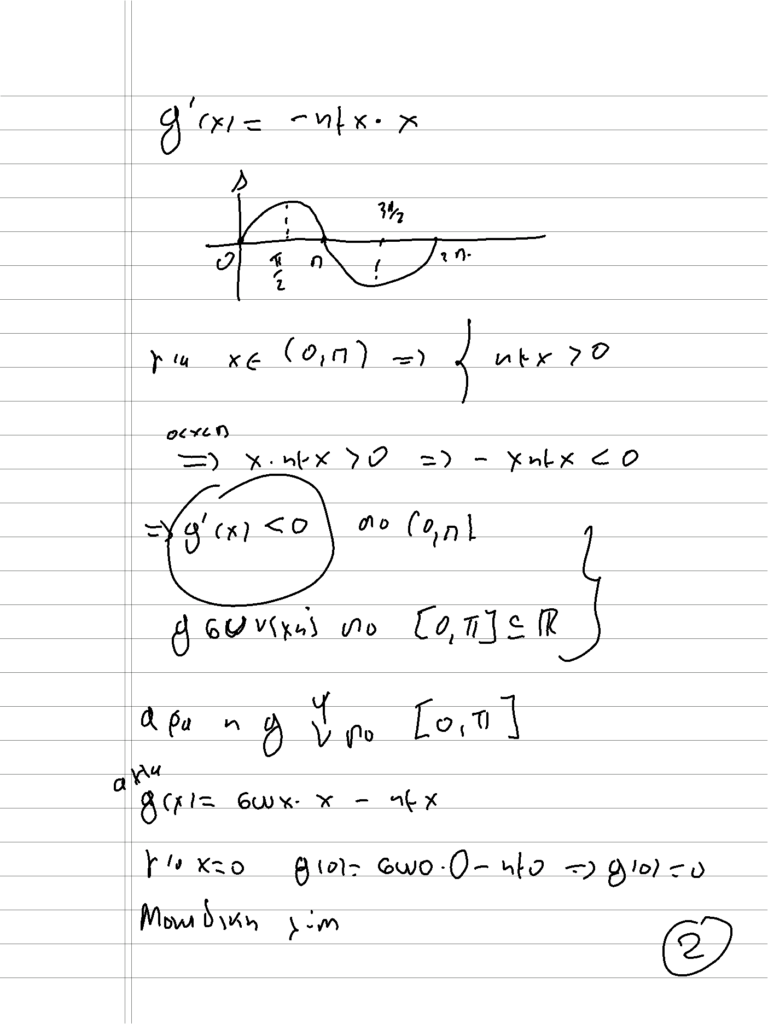 g'(x) = -ημx·x
3π/2
0 π/2 π 2π.
για x∈ (0,π) => { ημx > 0
0<x<π
=> x·ημx > 0 => - xημx < 0
=> g'(x) < 0 στο (0,π)
g συνεχής στο [0,π] ⊆ ℝ
άρα η g ↓ στο [0,π]
αλλα
g(x) = συνx·x - ημx
για x=0 g(0) = συν0·0 - ημ0 => g(0) = 0
Μοναδική
2